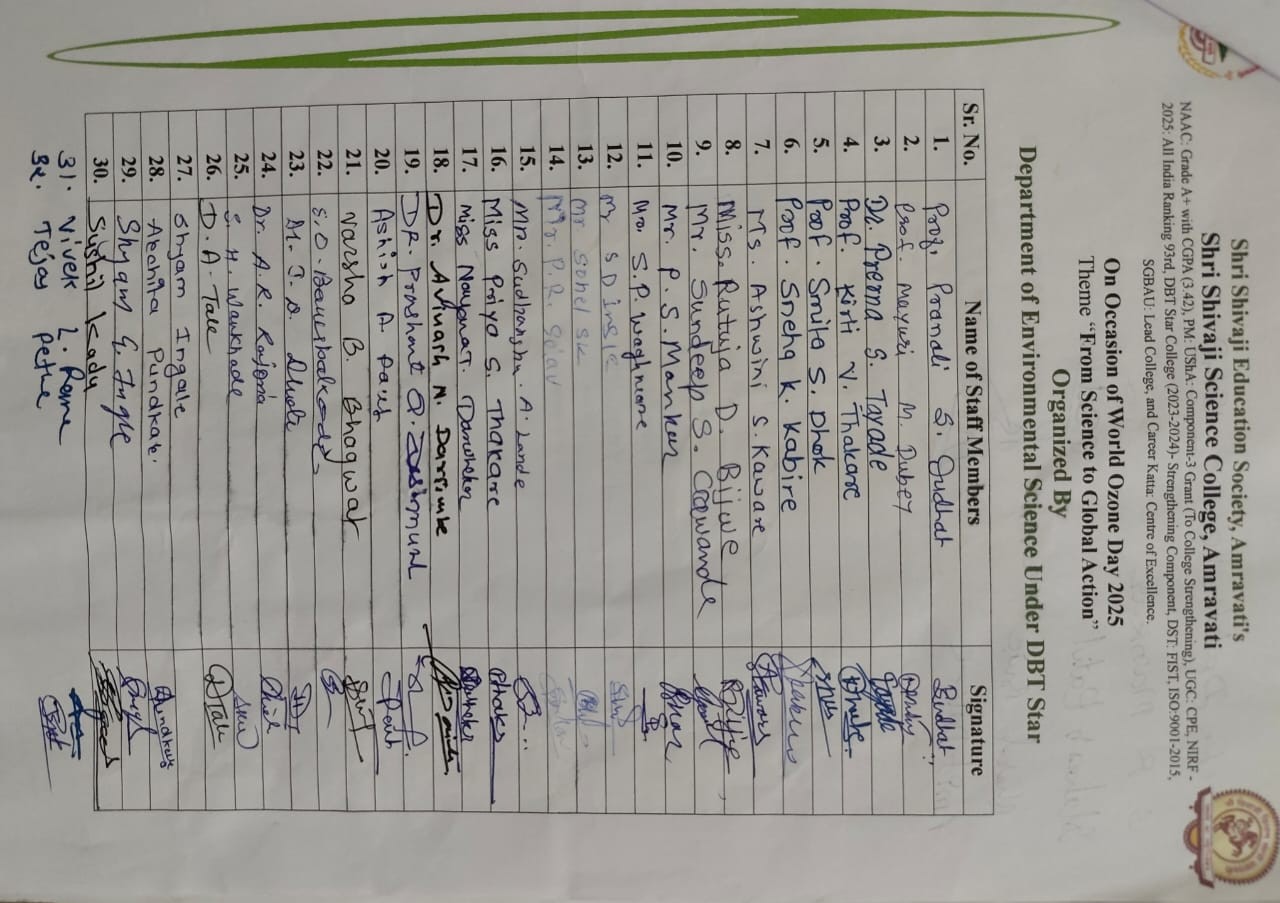 Shri Shivaji Education Society, Amravati's
Shri Shivaji Science College, Amravati
NAAC: Grade A+ with CGPA (3.42), PM: UShA: Component-3 Grant (To College Strengthening), UGC: CPE, NIRF -
2025: All India Ranking 93rd, DBT Star College (2023-2024)- Strengthening Component, DST: FIST, ISO-9001-2015,
SGBAU: Lead College, and Career Katta: Centre of Excellence.
On Occasion of World Ozone Day 2025
Theme “From Science to Global Action”
Organized By
Department of Environmental Science Under DBT Star
Sr. No. Name of Staff Members Signature
1. Prof. Pranali S. Budhat
2. Prof. Mayuri M. Dubey
3. Dr. Prema S. Tayade
4. Prof. Kirti V. Thakare
5. Prof. Smita S. Dhok
6. Prof. Sneha K. Kabire
7. Ms. Ashwini S. Kaware
8. Miss. Rutuja D. Bijwe
9. Mr. Sundeep S. Gawande
10. Mr. P. S. Mankar
11. Mr. S. P. Waghmare
12. Mr. S D Ingle
13. Mr Sohel Sk
14. Mr. P. R.
15. Mr. Sudhanshu. A. Lande
16. Miss Priya S. Thakare
17. Miss Nayana T.
18. Dr. Avinash N. Darsimbe
19. DR. Prashant Q. Deshmukh
20. Ashish A. Paul
21. Varsha B. Bhagwat
22. S. O.
23. D. Dhote
24. Dr. A. R. Rajoria
25. S. H. Wankhade
26. D. A. Tale
27. Shyam Ingale
28. Abahita Pundkar.
29. Shyam G. Ingle
30. Sushil Kady
31. Vivek L. Rane
32. Tejas Pethe